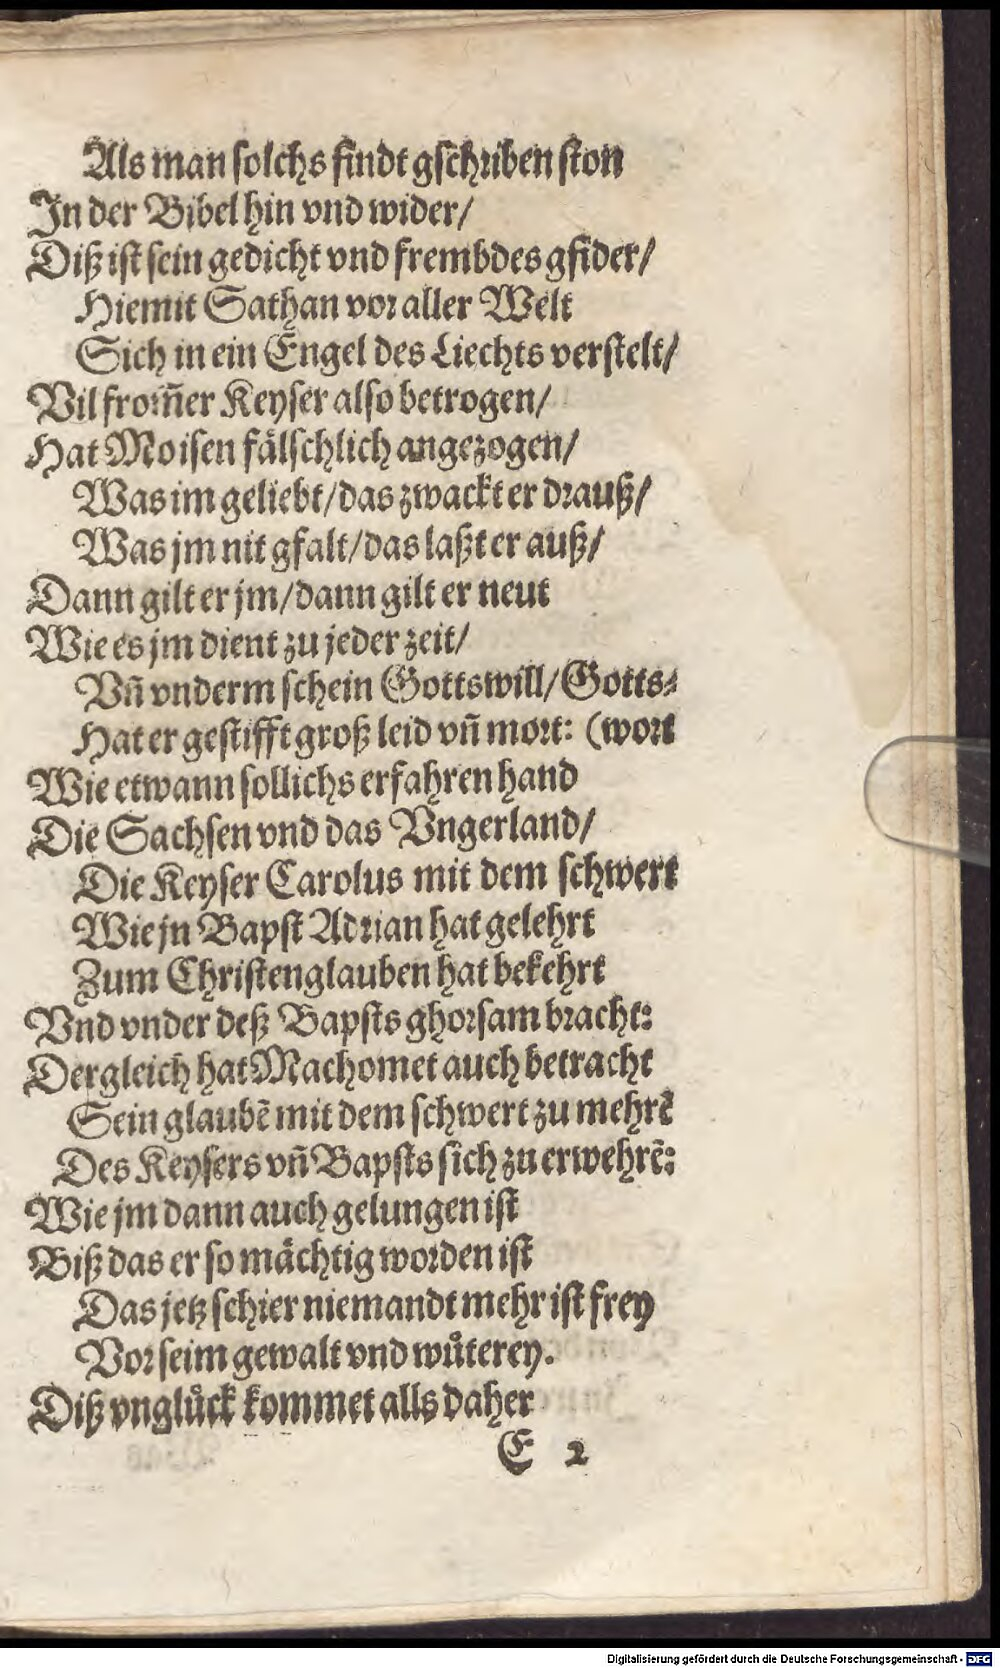 Als man solchs findt gschriben ston
In der Bibel hin vnd wider/
Diß ist sein gedicht vnd frembdes gfider/
Hiemit Sathan vor aller Welt
Sich in ein Engel des Liechts verstelt/
Vil from̃er Keyser also betrogen/
Hat Moisen fälschlich angezogen/
Was im geliebt/das zwackt er drauß/
Was jm nit gfalt/das laßt er auß/
Dann gilt er jm/dann gilt er neut
Wie es jm dient zu jeder zeit/
Vñ vnderm schein Gottswill/Gotts-
Hat er gestifft groß leid vñ mort: (wort
Wie etwann sollichs erfahren hand
Die Sachsen vnd das Vngerland/
Die Keyser Carolus mit dem schwert
Wie jn Bapst Adrian hat gelehrt
Zum Christenglauben hat bekehrt
Vnd vnder deß Bapsts ghorsam bracht:
Dergleich hat Machomet auch betracht
Sein glaubẽ mit dem schwert zu mehrẽ
Des Keysers vñ Bapsts sich zu erwehrẽ:
Wie jm dann auch gelungen ist
Biß das er so mächtig worden ist
Das jetz schier niemandt mehr ist frey
Vor seim gewalt vnd wůterey.
Diß vnglůck kommet alls daher
E 2
Digitalisierung gefördert durch die Deutsche Forschungsgemeinschaft - DFG